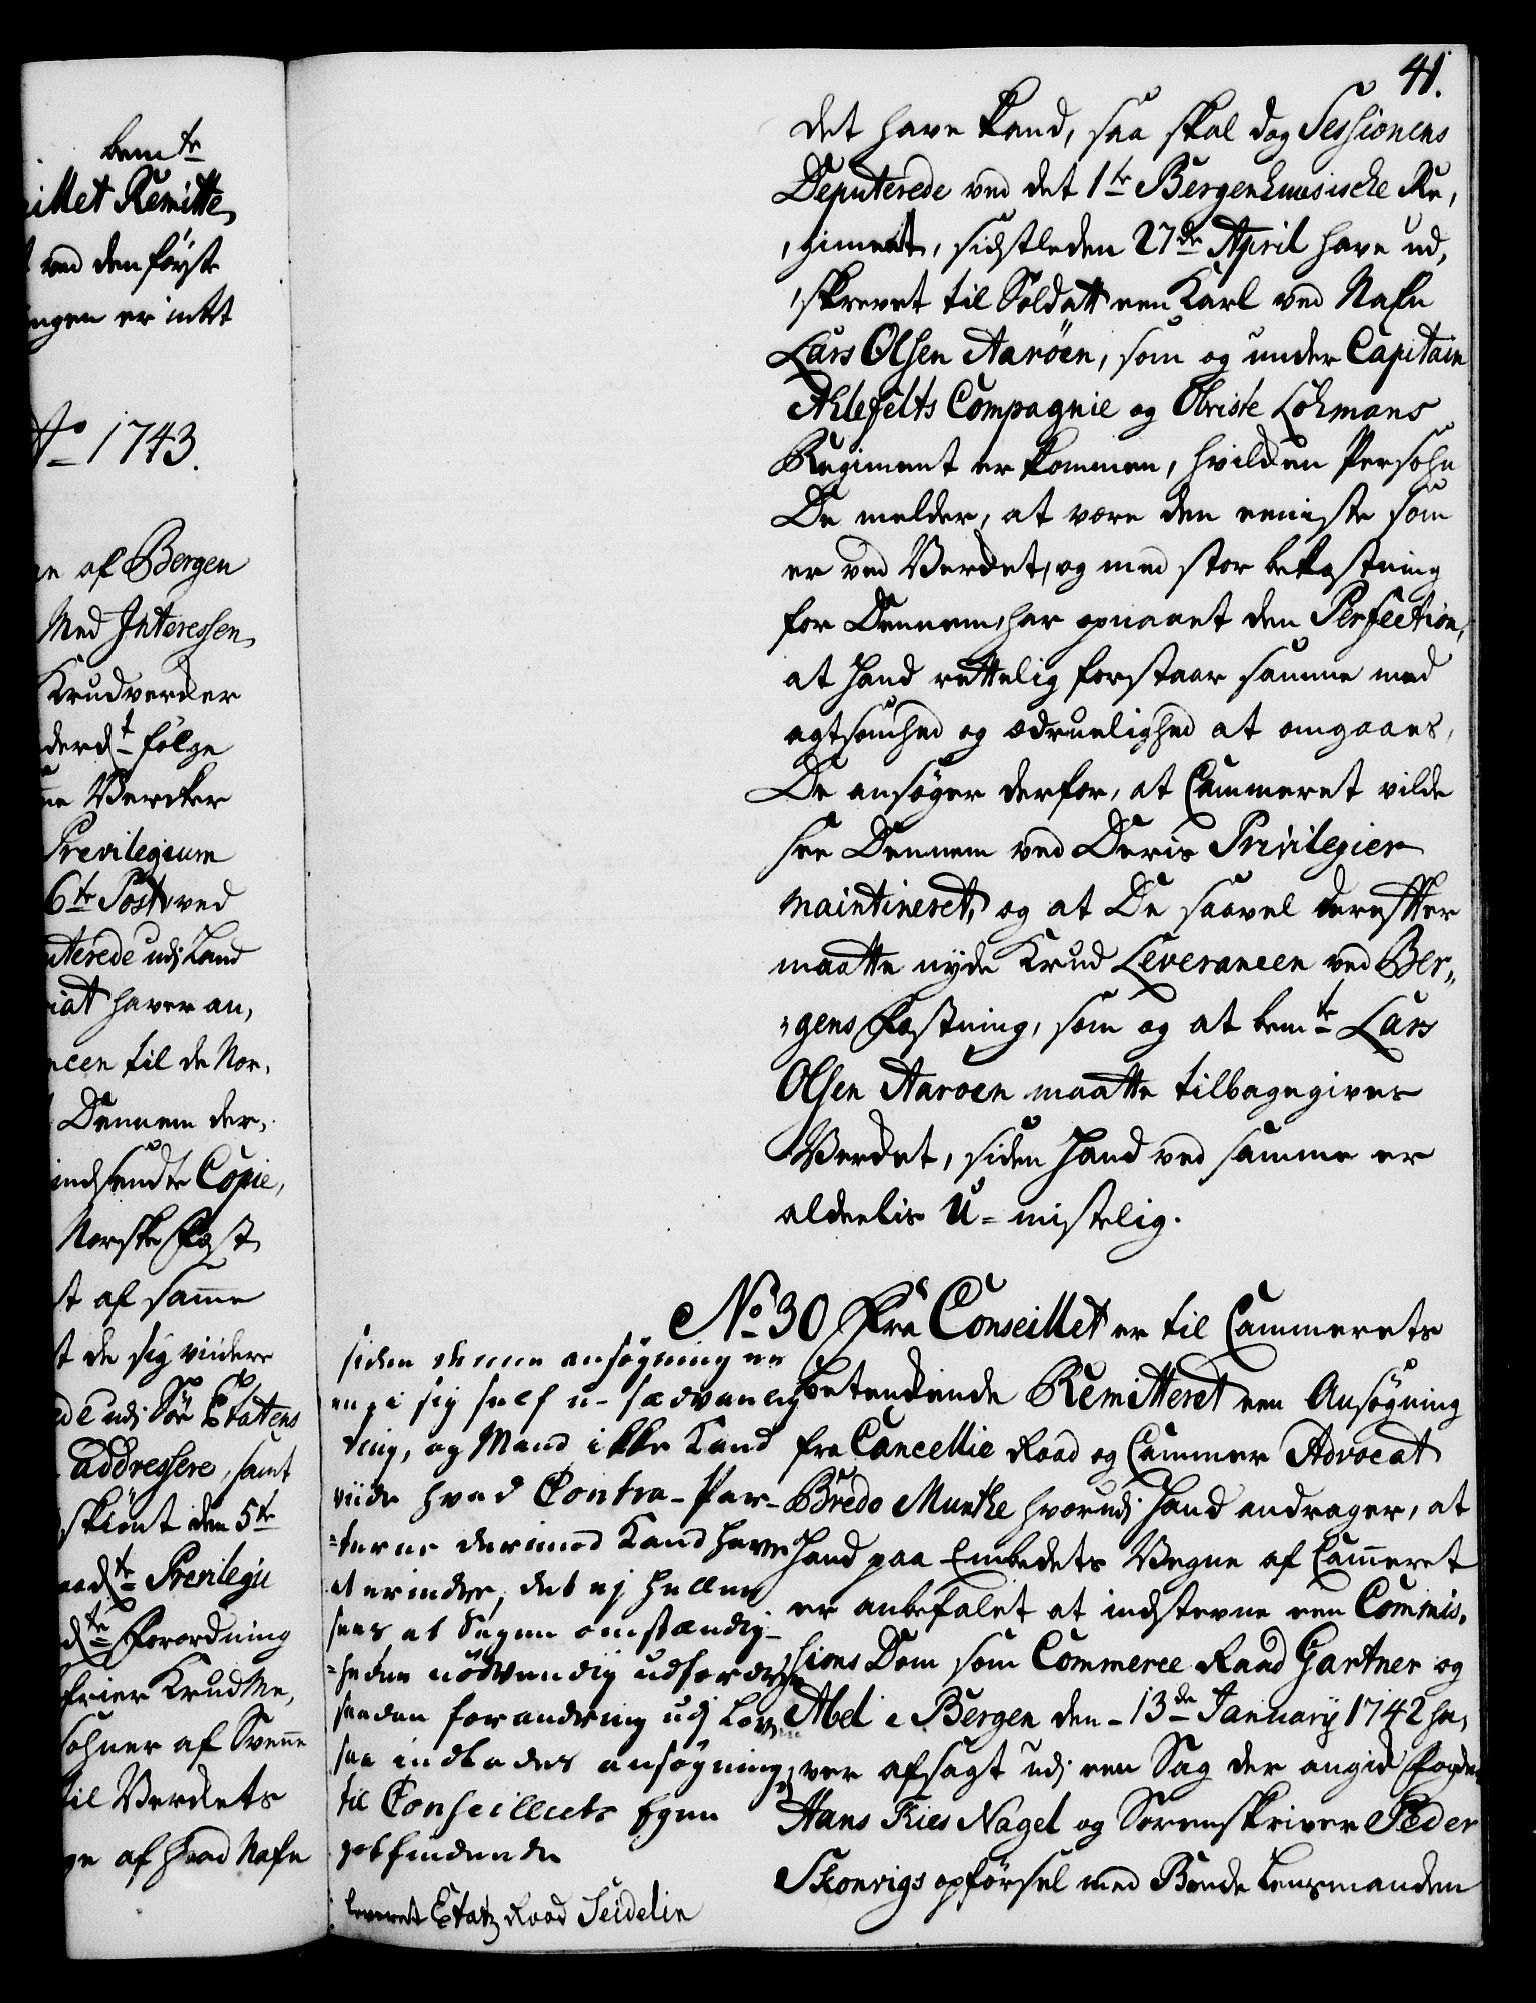 bemte
illet Remitte,
ved den först
ingen er intet
Ao 1743.
af Bergen
Med Interessen,
Krudverker
følge
Vercker
Previlegium
6te Post ved
uterede udj Land
iat haver an,
ncen til de Nor,
Dennem der,
indsendte Copie,
Norske Fæst,
st af samme
t de sig viidere
de udj Söe Etatens
addressere, samt
skiönt den 5te
Previlegii
dte Forordning
frier Krud Me,
sohner af Svenne
til Verckets
ge af hvad Nafn
41.
det have kand, saa skal dog Sessionens
Deputerede ved det 1te Bergenhuusische Re,
,giment, sidstleden 27de April have ud,
,skrevet til Soldatt een Karl ved Nafn
Lars Olsen Aaröen, som og under Capitain
Ahlefelts Compagnie og Obriste Lohmans
Regiment er kommen, hvilcken Persohn
De melder, at være den eeniste som
er ved Vercket, og med stor bekostning
for Dennem, har opnaaet den Perfection,
at Hand rettelig forstaar samme med
agtsomhed og ædruelighed at omgaaes,
De ansøger derfor, at Cammeret vilde
see Dennem ved Deris Privilegier
maintineret, og at De saavel derefter
maatte nyde Krud Leverancen ved Ber,,
,gens Fæstning, som og at bemte Lars
Olsen Aaroen maatte tilbagegives
Vercket, siden Hand ved samme er
aldeelis U-mistelig.
No 30 Fra Conseillet er til Cammerets
betenckende Remitteret een Ansøgning
fra Cancellie Raad og Cammer Advocat
Bredo Munthe hvorudj Hand andrager, at
Hand paa Embedets Vegne af Cammeret
er anbefalet at indstevne een Commis,
,sions Dom som Commerce Raad Gartner og
Abel i Bergen den 13de Januarij 1742 ha,
,ver afsagt udj een Sag der angik Fogden
Hans Kies Nagel og Sorenskriver Peder
Skonvigs opførsel med Bonde Lensmanden
siden denne ansøgning er
en i sig self u-sædvanlig
ting, og Mand ikke Kand
viide hvad Contra-Par-
=terne derimod Kand have
at erindre, det ej heller
sees at Sagens omstændig-
=heder nødvendig udfordrer
saadan forandring udj Loven
saa indlades ansøgningen
til Conseillets Egen
gotfindende
leveret Etatz Raad Seidelin